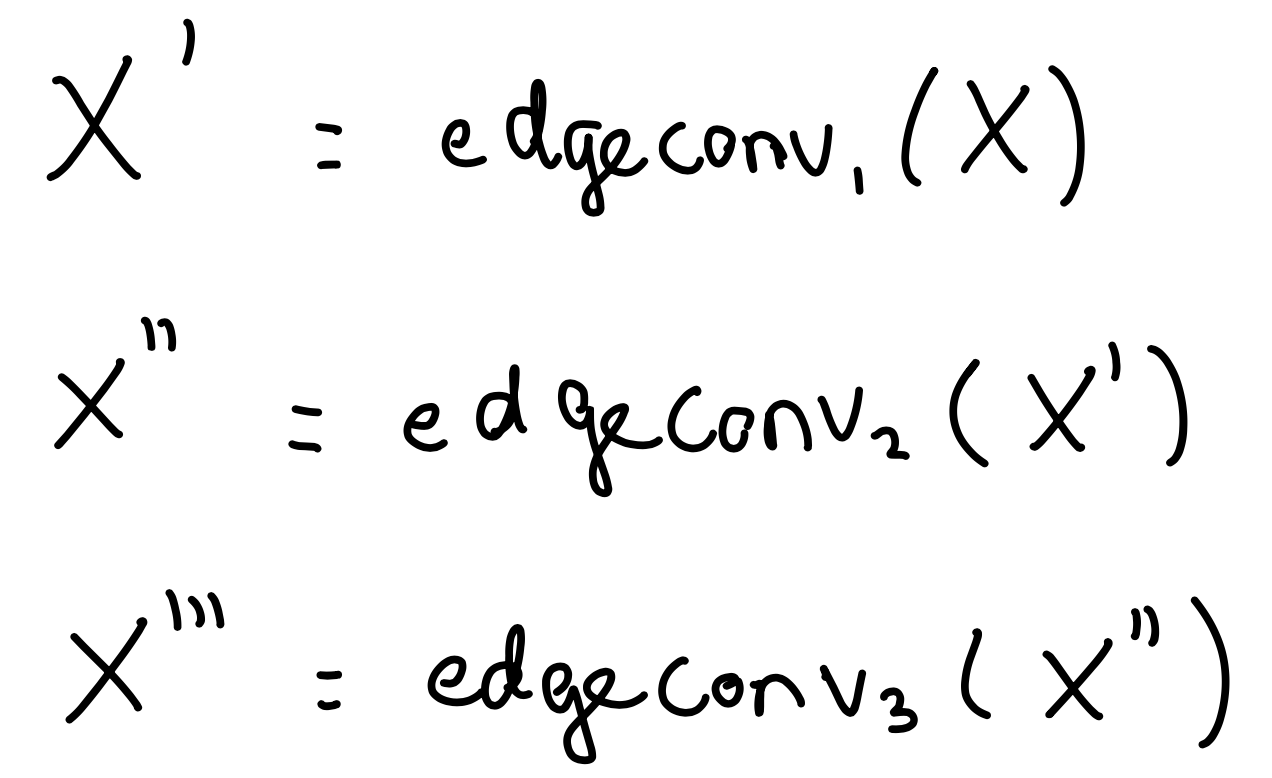 X' = edgeconv₁(X)
X'' = edgeconv₂(X')
X''' = edgeconv₃(X'')